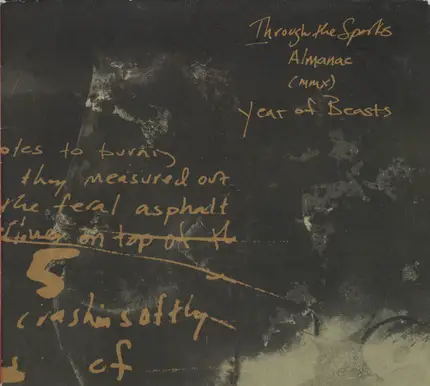 Through the Sparks
Almanac
(MMX)
Year of Beasts
oles to burning
they measured out
the feral asphalt
on top of th
S
crashin softly
s of